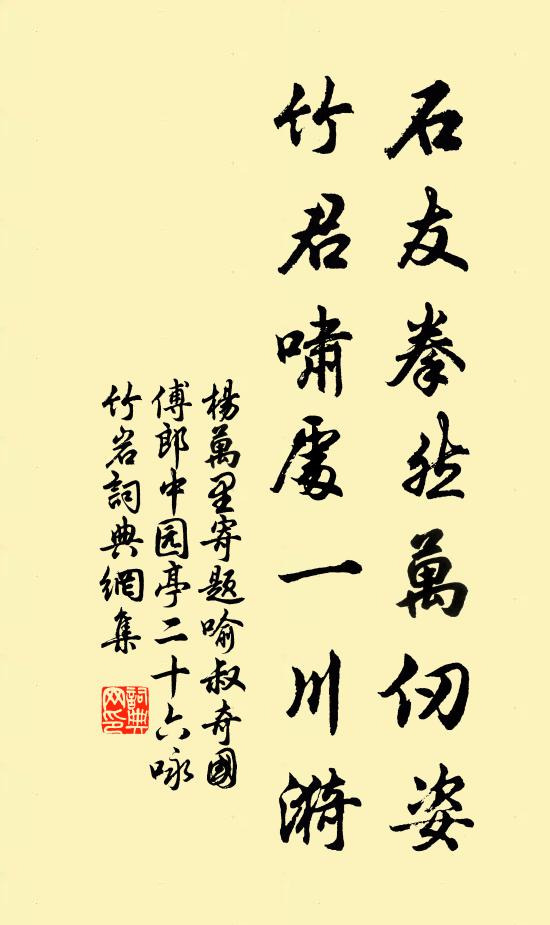 石友拳然萬仞姿
竹君嘯處一川漪
楊萬里寄題喻叔奇國
傅郎中园亭二十六咏
竹岩詞典網集
詞典网印